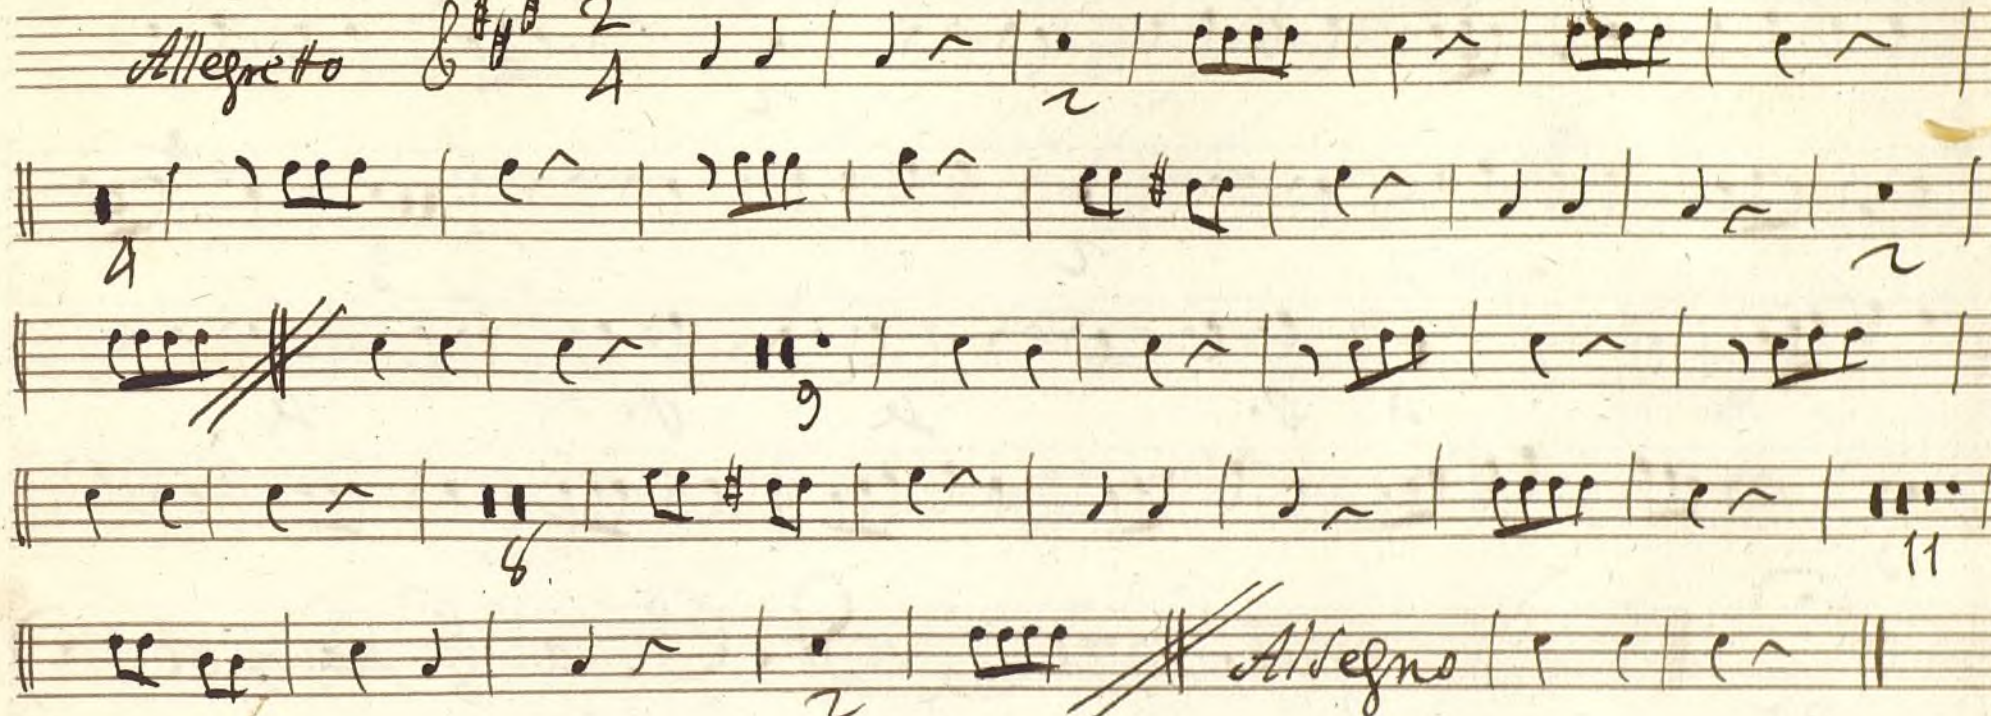 Allegretto 2 4 2
4 2
9
8 11
2 Al Segno